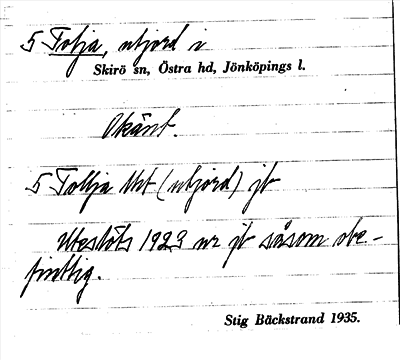 5 Tolja, utjord i
Skirö sn, Östra hd, Jönköpings l.
Okänt.
5 Tollja Ut (utjord) jb
Uteslöts 1923 ur jb såsom obe-
fintlig.
Stig Bäckstrand 1935.